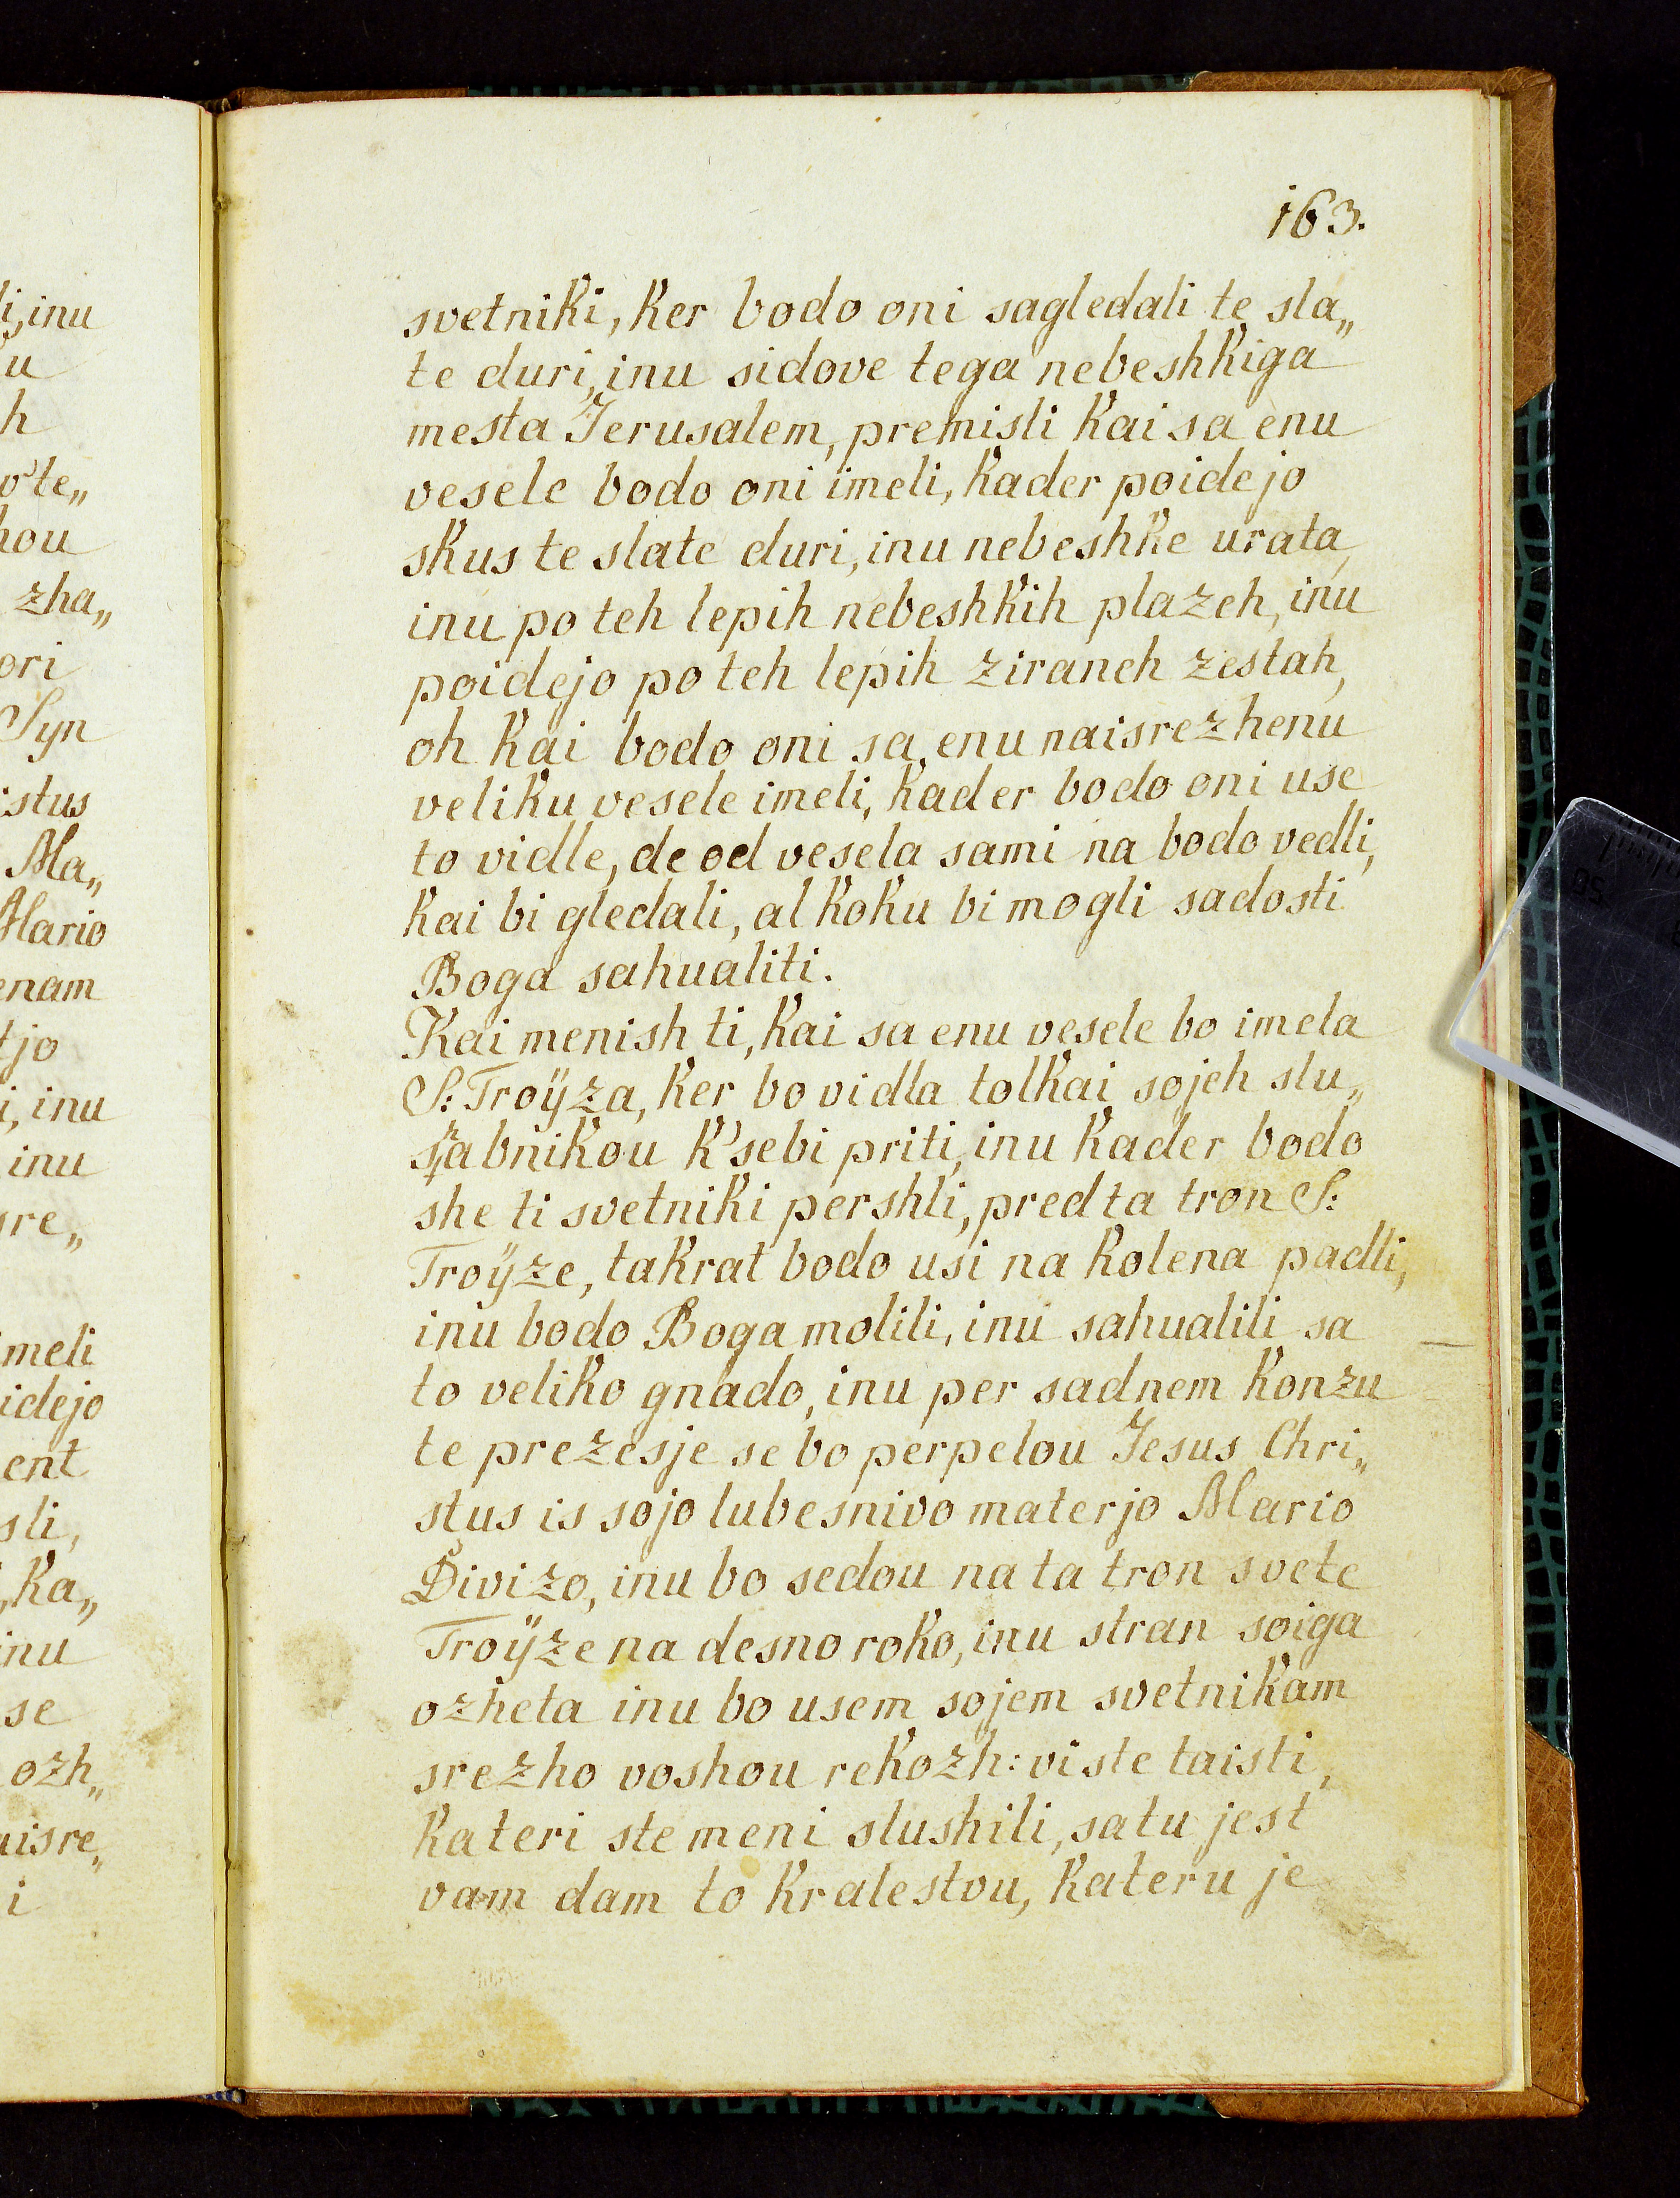 163.
svetniki, ker bodo oni sagledali te sla„
te duri, inu sidove tega nebeshkiga
mesta Jerusalem, premisli kai sa enu
vesele bodo oni imeli, kader poidejo
skus te slate duri, inu nebeshke urata,
inu po teh lepih nebeshkih plazeh, inu
poidejo po teh lepih ziraneh zestah,
oh kai bodo oni sa enu naisrezhenu
veliku vesele imeli, kader bodo oni use
to vidle, de od vesela sami na bodo vedli,
kai bi gledali, al koku bi mogli sadosti
Boga sahualiti.
Kai menish ti, kai sa enu vesele bo imela
S: Troÿza, ker bo vidla tolkai sojeh slu„
abnikou k'sebi priti, inu kader bodo
she ti svetniki pershli, pred ta tron S:
Troÿze, takrat bodo usi na kolena padli,
inu bodo Boga molili, inu sahualili sa
to veliko gnado, inu per sadnem konzu
te prezesje se bo perpelou Jesus Chri„
stus is sojo lubesnivo materjo Mario
Divizo, inu bo sedou na ta tron svete
Troÿze na desno roko, inu stran soiga
ozheta inu bo usem sojem svetnikam
srezho voshou rekozh: vi ste taisti,
kateri ste meni slushili, satu jest
vam dam to kralestvu, kateru je
li, inu
u
h
te„
hou
zha„
ori
Syn
istus
Ma„
Mario
enam
tjo
i, inu
inu
sre„
imeli
idejo
ent
sli,
ka„
inu
se
ozh„
aisre„
i